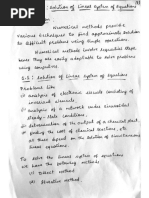 : Solution of Linear System of Equations
Numerical methods provide
various techniques to find approximate solution
to difficult problems using simple operations.
Numerical methods
hence they are easily adaptable to solve problem
using computers.
Solution of Linear System of Equations
Problems like
i) analysis of electronic circuits consisting of
invariant elements
ii) analysis of a network under sinusoidal
steady-state conditions,
iii) determination of the output of a chemical plant
iv) finding the cost of chemical reactions, etc
are based on the solution of linear
equations.
To solve the linear system of equations, we
have the following
i) Direct method
ii) Iterative method